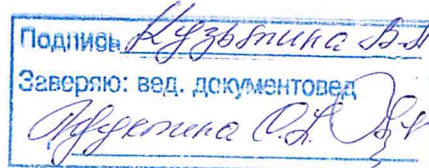 Подпись Кузьмина В.А
Заверяю: вед. документовед
О.А.